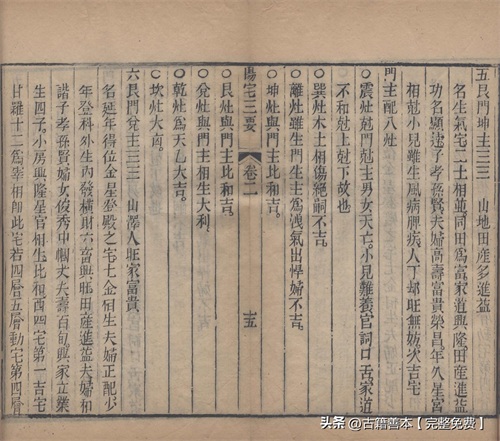 五艮門坤主三三三 山地田產多進益
名生氣宅二土相並同田爲富家道興隆田產進益
功名顯達子孝孫賢夫婦高壽富貴榮昌年久星宮
相尅小兒雖生風病脾疾人丁却旺無妨次吉宅
門主配八灶
◎震灶尅門尅主男女夭亡小兒難養官詞口舌家道
不和尅上尅下故也
◎巽灶木土相傷絕嗣不吉
◎離灶雖生門生主爲洩氣出悍婦不吉
◎坤灶與門主比和吉
陽宅三要 卷二 十五
◎艮灶與門主比和吉
◎兌灶與門主相生大利
◎乾灶爲天乙大吉
◎坎灶大凶
六艮門兌主三三三 山澤人旺家富貴
名延年得位金星登殿之宅七金宿生夫婦正配少
年登科外生內發橫財六畜興旺田產進益夫婦和
諧子孝孫賢婦女俊秀巾幗丈夫壽百旬興家立業
生四子小房興隆星宮相生比和西四宅第一吉宅
甘羅十二爲宰相即此宅若四層五層動宅第四層
頭条 @古籍善本【完整免费】